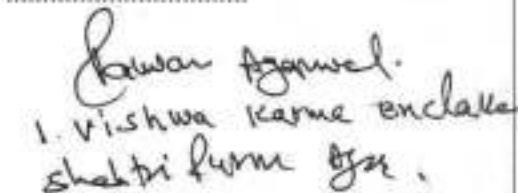 Pawan Agarwal.
1. Vishwa Karma enclave
Shaktri Purm Agr.